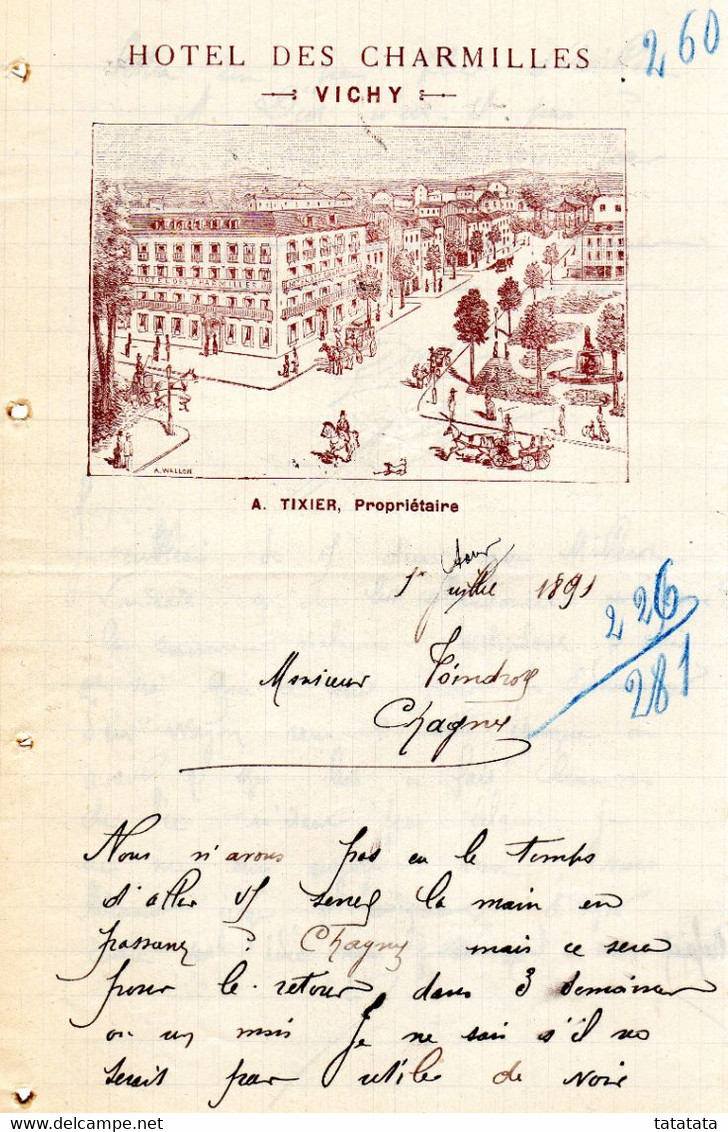 260
HOTEL DES CHARMILLES
VICHY
HOTEL DES CHARMILLES
A. WALLON
A. TIXIER, Propriétaire
Aout
1er juillet 1891
226
281
Monsieur
Chagny
Nous n'avons pas eu le temps
d'aller vs serrer la main en
passant à Chagny mais ce sera
pour le retour dans 3 semaines
ou un mois Je ne sais s'il ne
serait pas utile de voir
tatatata